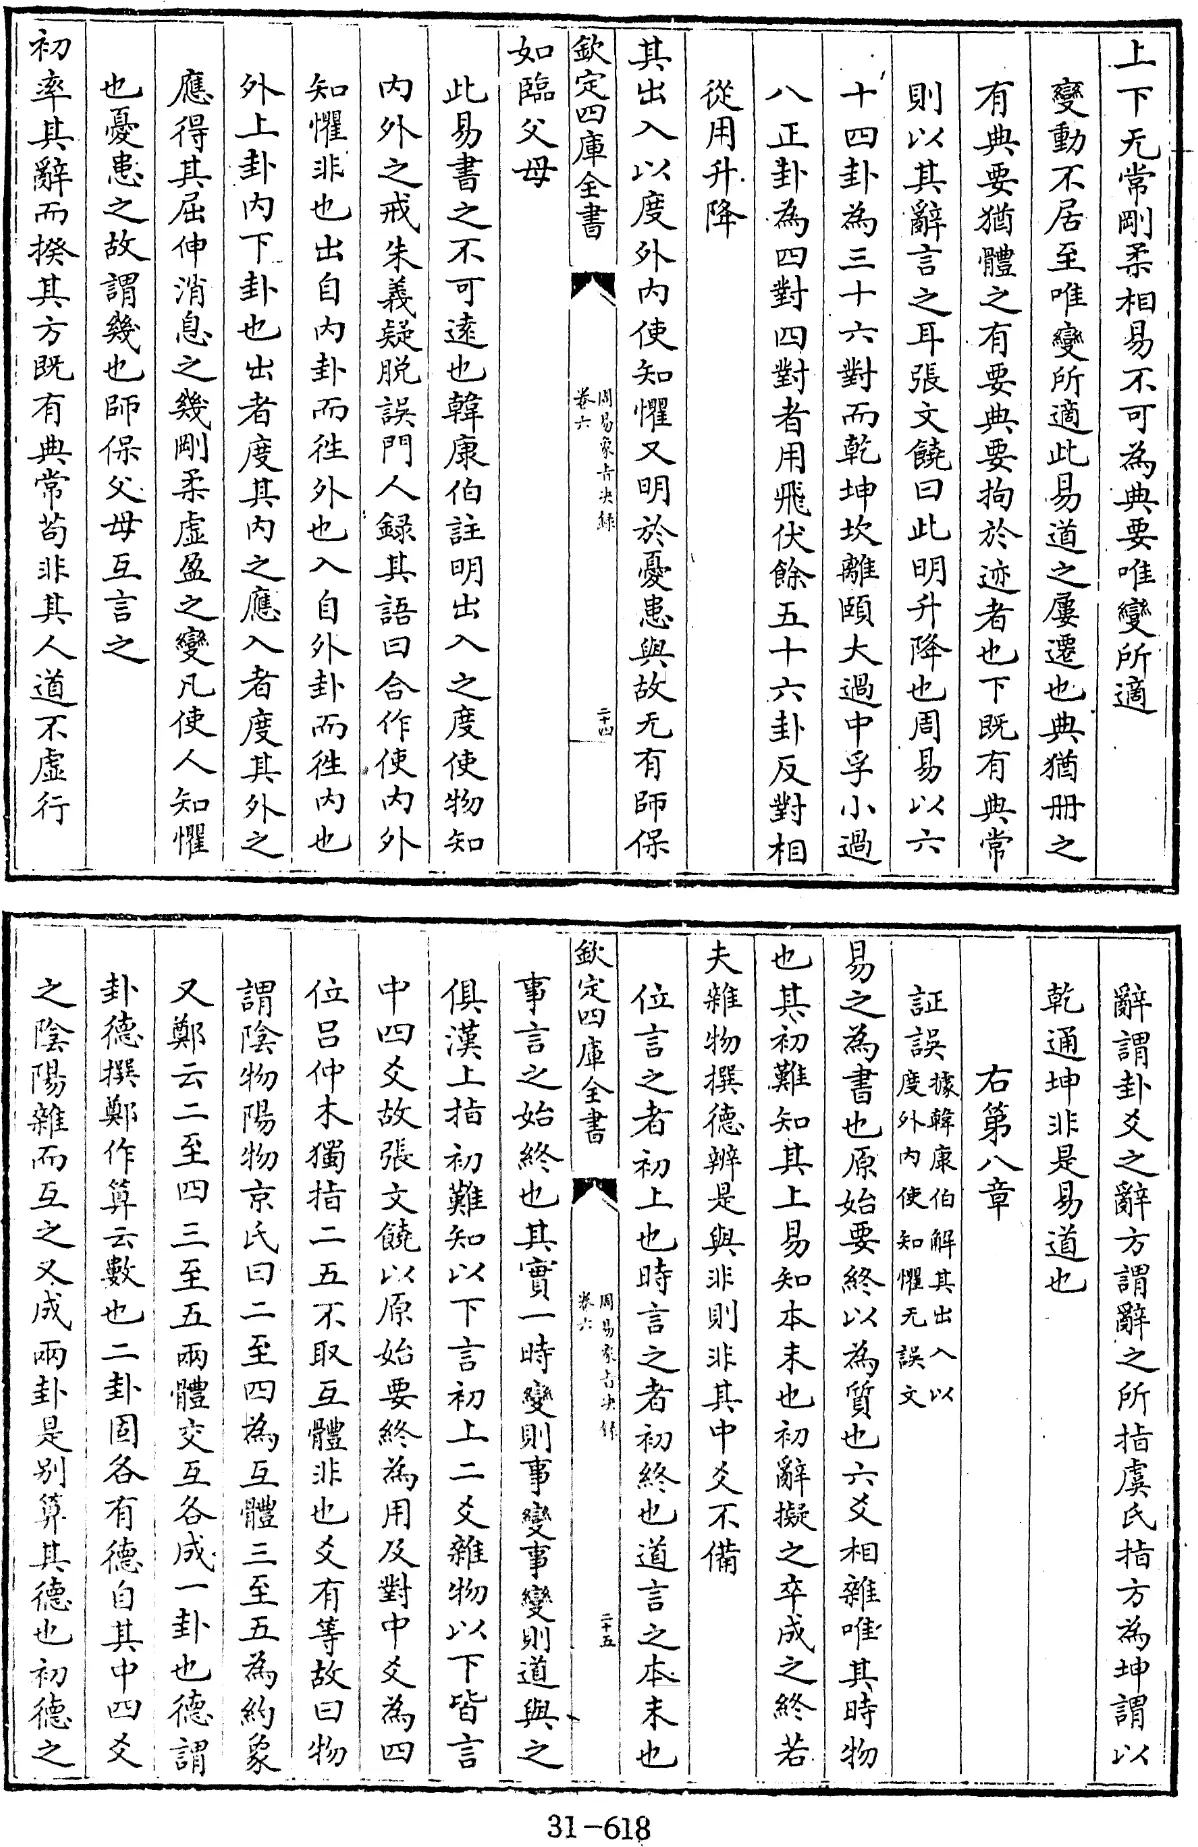 上下无常剛柔相易不可為典要唯變所適
變動不居至唯變所適此易道之屢遷也典猶冊之
有典要猶體之有要典要拘於迹者也下既有典常
則以其辭言之耳張文饒曰此明升降也周易以六
十四卦為三十六對而乾坤坎離頤大過中孚小過
八正卦為四對四對者用飛伏餘五十六卦反對相
從用升降
其出入以度外内使知懼又明於憂患與故无有師保
欽定四庫全書
周易象旨决録
卷六
二十四
如臨父母
此易書之不可遠也韓康伯註明出入之度使物知
内外之戒朱義疑脱誤門人録其語曰合作使内外
知懼非也出自内卦而徃外也入自外卦而徃内也
外上卦内下卦也出者度其内之應入者度其外之
應得其屈伸消息之幾剛柔虚盈之變凡使人知懼
也憂患之故謂幾也師保父母互言之
初率其辭而揆其方既有典常苟非其人道不虚行
辭謂卦爻之辭方謂辭之所指虞氏指方為坤謂以
乾通坤非是易道也
右第八章
証誤據韓康伯解其出入以
度外内使知懼无誤文
易之為書也原始要終以為質也六爻相雜唯其時物
也其初難知其上易知本末也初辭擬之卒成之終若
夫雜物撰德辨是與非則非其中爻不備
位言之者初上也時言之者初終也道言之本末也
欽定四庫全書
周易象旨决録
卷六
二十五
事言之始終也其實一時變則事變事變則道與之
俱漢上指初難知以下言初上二爻雜物以下皆言
中四爻故張文饒以原始要終為用及對中爻為四
位吕仲木獨指二五不取互體非也爻有等故曰物
謂陰物陽物京氏曰二至四為互體三至五為約象
又鄭云二至四三至五兩體交互各成一卦也德謂
卦德撰鄭作算云數也二卦固各有德自其中四爻
之陰陽雜而互之又成兩卦是别算其德也初德之
31-618